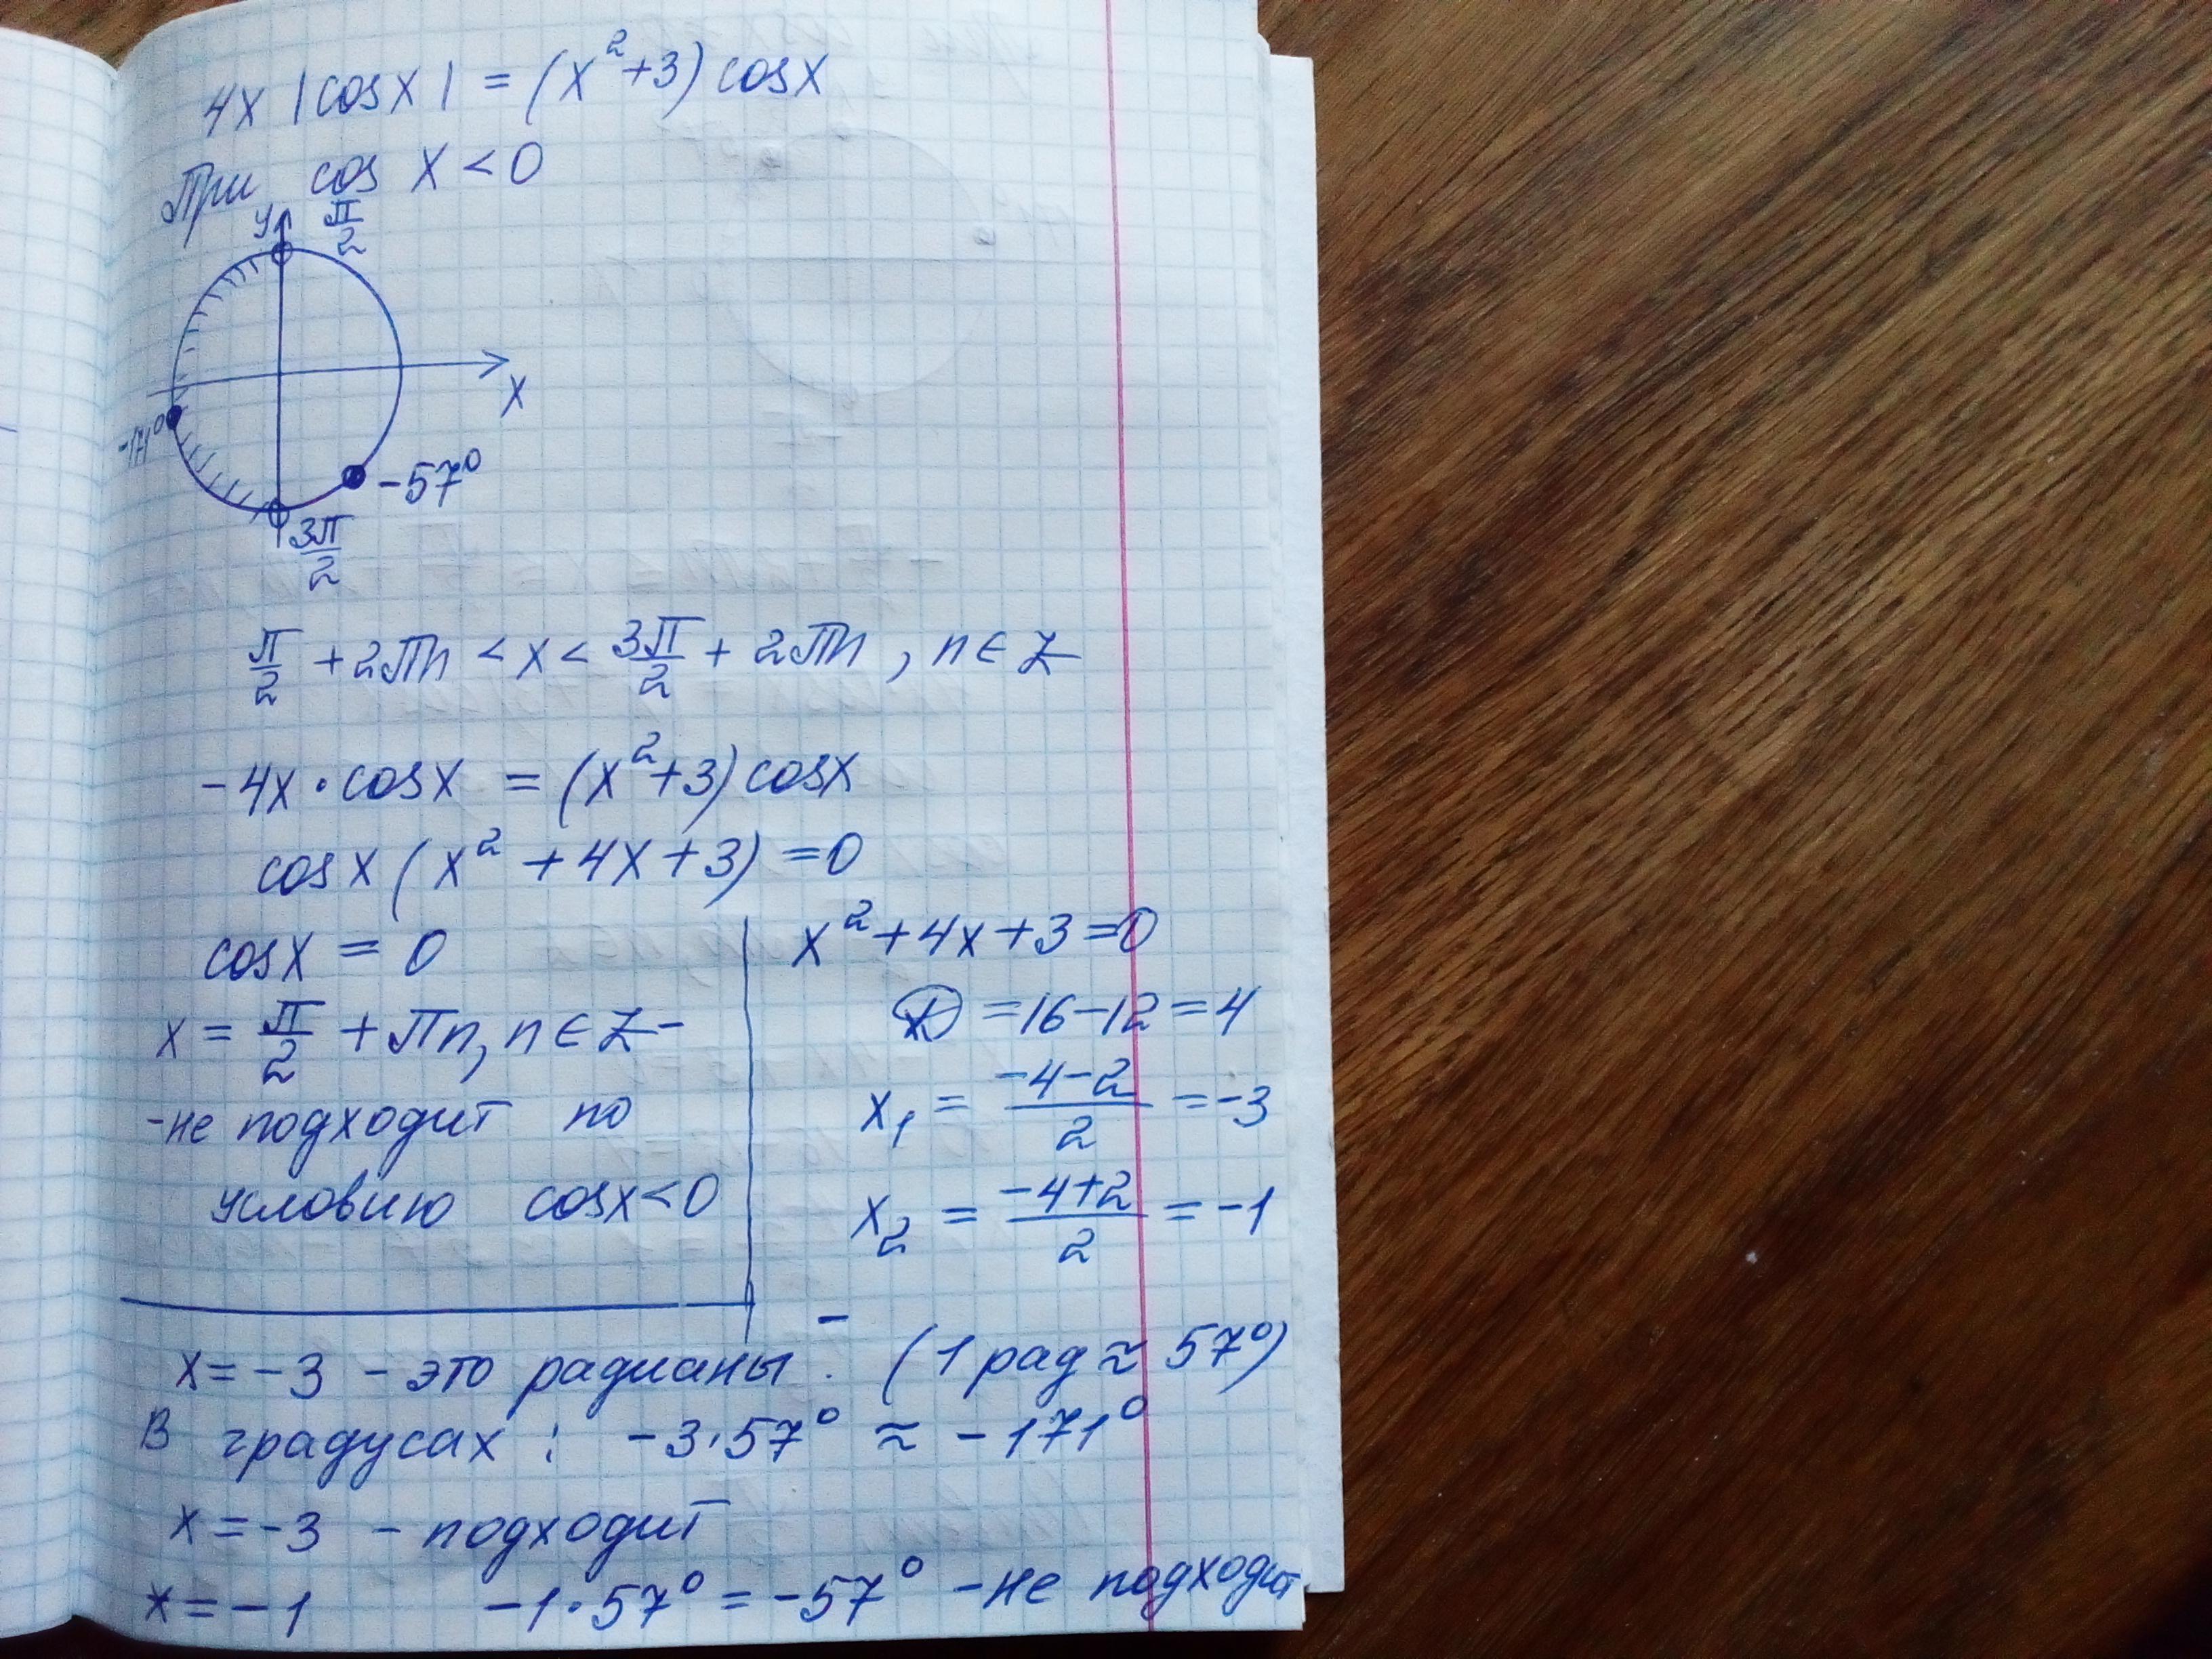 4x |cosx| = (x²+3) cosx
При cos x < 0
y π/2
x
-171°
-57°
3π/2
π/2 + 2πn < x < 3π/2 + 2πn, n ∈ Z
-4x · cosx = (x²+3) cosx
cosx (x² + 4x + 3) = 0
cosx = 0
x = π/2 + πn, n ∈ Z -
- не подходит по
условию cosx < 0
x² + 4x + 3 = 0
D = 16 - 12 = 4
x₁ = (-4-2)/2 = -3
x₂ = (-4+2)/2 = -1
x = -3 - это радианы. (1 рад ≈ 57°)
В градусах: -3·57° ≈ -171°
x = -3 - подходит
x = -1 -1·57° = -57° - не подходит